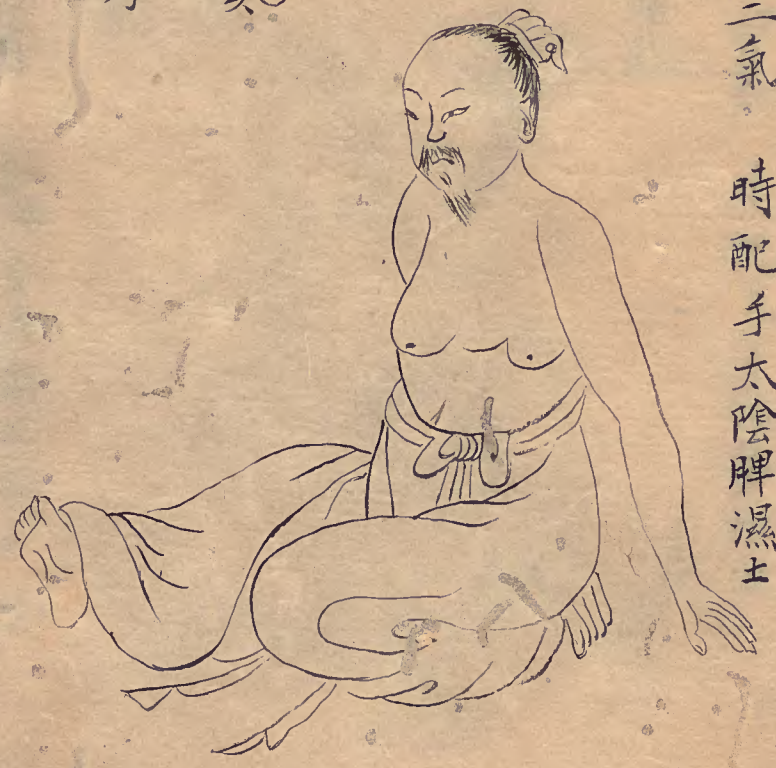 二氣 時配手太陰脾濕土